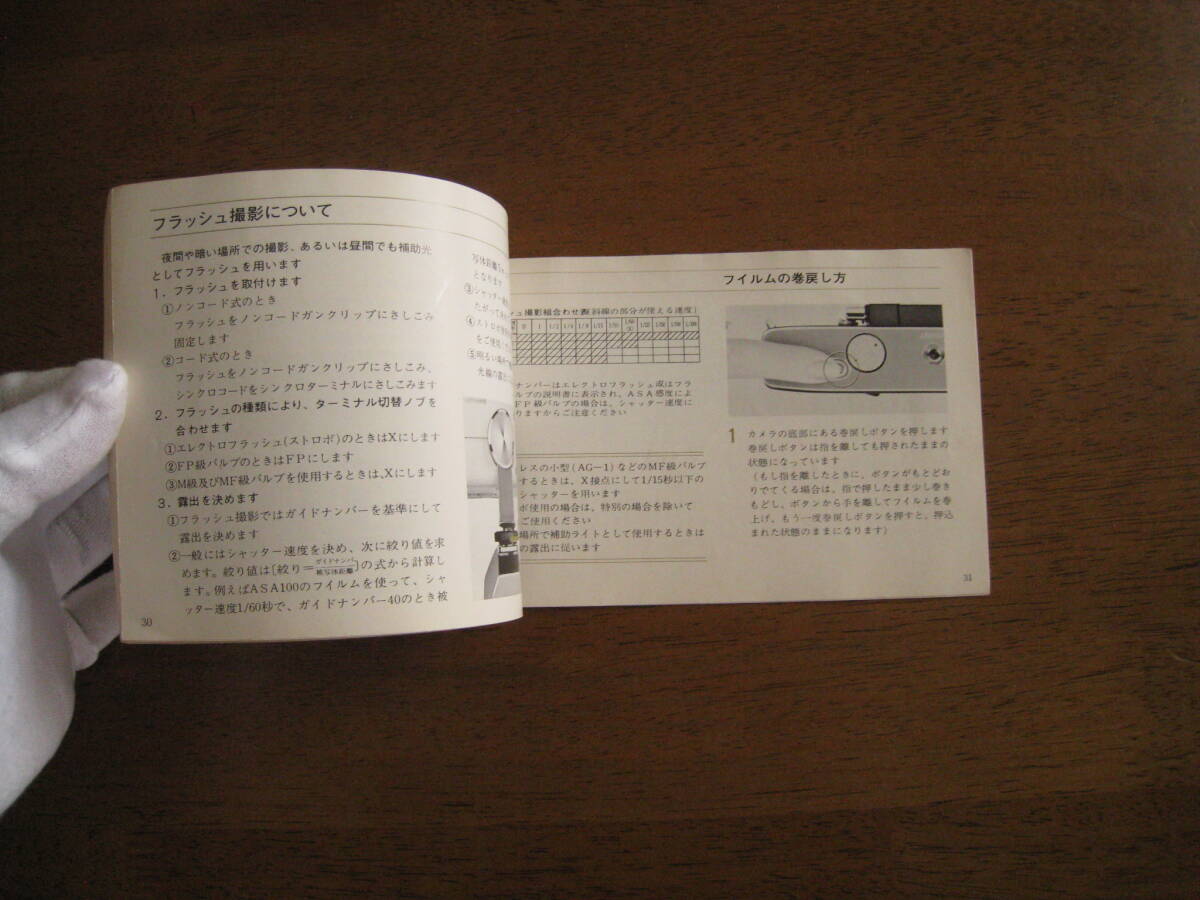 フラッシュ撮影について
夜間や暗い場所での撮影、あるいは昼間でも補助光
としてフラッシュを用います
1. フラッシュを取付けます
①ノンコード式のとき
フラッシュをノンコードガンクリップにさしこみ
固定します
②コード式のとき
フラッシュをノンコードガンクリップにさしこみ、
シンクロコードをシンクロターミナルにさしこみます
2. フラッシュの種類により、ターミナル切替ノブを
合わせます
①エレクトロフラッシュ(ストロボ)のときはXにします
②FP級バルブのときはFPにします
③M級及びMF級バルブを使用するときは、Xにします
3. 露出を決めます
①フラッシュ撮影ではガイドナンバーを基準にして
露出を決めます
②一般にはシャッター速度を決め、次に絞り値を求
めます。絞り値は〔絞り=ガイドナンバー/被写体距離〕の式から計算し
ます。例えばASA100のフイルムを使って、シャ
ッター速度1/60秒で、ガイドナンバー40のとき被
30
写体距離
となります
③シャッター
たがって
④ストロボ
をご使用
⑤明るい場所
光線の露出
ュ撮影組合わせ表(斜線の部分が使える速度)
ナンバーはエレクトロフラッシュ或はフラ
ルブの説明書に表示され、ASA感度によ
FP級バルブの場合は、シャッター速度に
りますからご注意ください
レスの小型(AG-1)などのMF級バルブ
するときは、X接点にして1/15秒以下の
シャッターを用います
ボ使用の場合は、特別の場合を除いて
ご使用ください
場所で補助ライトとして使用するときは
の露出に従います
フイルムの巻戻し方
1 カメラの底部にある巻戻しボタンを押します
巻戻しボタンは指を離しても押されたままの
状態になっています
(もし指を離したときに、ボタンがもとどお
りでてくる場合は、指で押したまま少し巻き
もどし、ボタンから手を離してフイルムを巻
上げ、もう一度巻戻しボタンを押すと、押込
まれた状態のままになります)
31